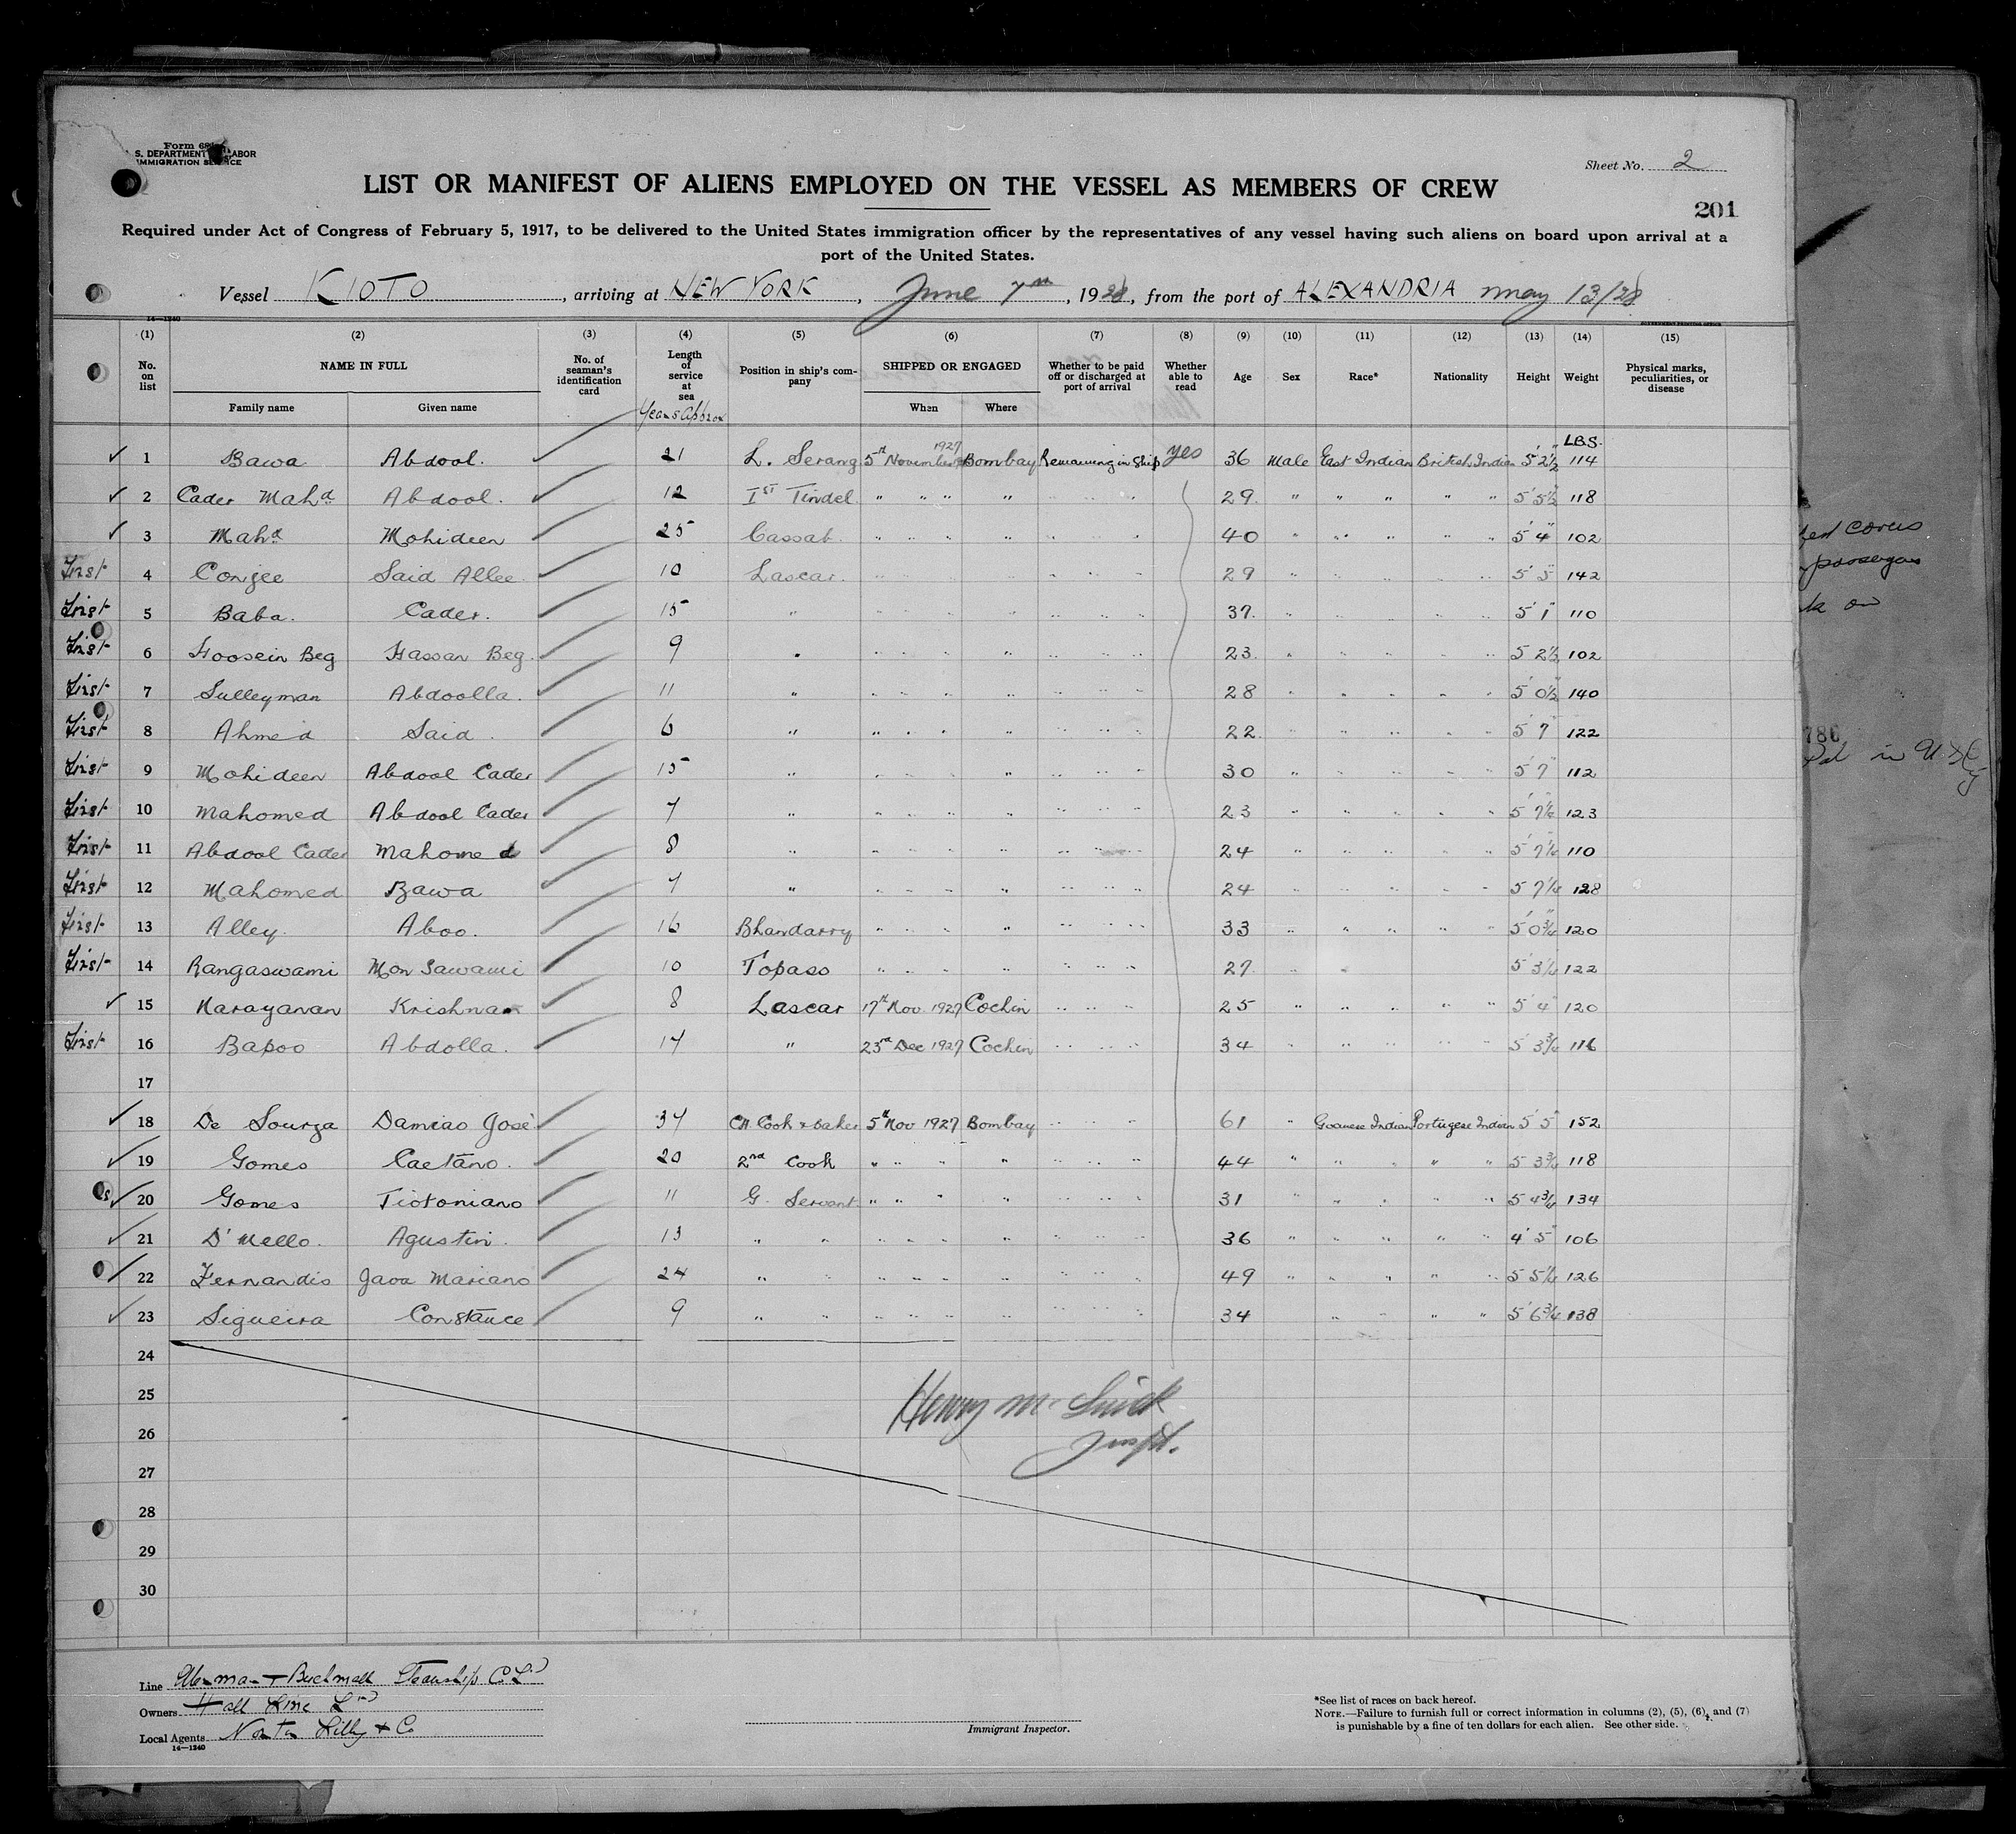 Form 680
U. S. DEPARTMENT OF LABOR
IMMIGRATION SERVICE
Sheet No. 2
LIST OR MANIFEST OF ALIENS EMPLOYED ON THE VESSEL AS MEMBERS OF CREW
201
Required under Act of Congress of February 5, 1917, to be delivered to the United States immigration officer by the representatives of any vessel having such aliens on board upon arrival at a
port of the United States.
Vessel KIOTO, arriving at NEW YORK, June 7th, 1928, from the port of ALEXANDRIA may 13/28
14—1240 GOVERNMENT PRINTING OFFICE
(1) (2) (3) (4) (5) (6) (7) (8) (9) (10) (11) (12) (13) (14) (15)
No. on list NAME IN FULL No. of seaman's identification card Length of service at sea Position in ship's company SHIPPED OR ENGAGED Whether to be paid off or discharged at port of arrival Whether able to read Age Sex Race* Nationality Height Weight Physical marks, peculiarities, or disease
Family name Given name Years Approx When Where
LBS.
✓ 1 Bawa Abdool. 21 L. Serang 5th November 1927 Bombay Remaining in Ship yes 36 Male East Indian British Indian 5' 2½" 114
✓ 2 Cader Mahd Abdool. 12 1st Tindel " " " " " " " 29 " " " " " 5' 5½" 118
✓ 3 Mahd Mohideen 25 Cassab " " " " " " " 40 " " " " " 5' 4" 102
First 4 Conjee Said Allee 10 Lascar " " " " " " " 29 " " " " " 5' 5" 142
First 5 Baba. Cader. 15 " " " " " " " " 37 " " " " " 5' 1" 110
First 6 Hoosein Beg Hassan Beg. 9 " " " " " " " " 23 " " " " " 5 2½ 102
First 7 Sulleyman Abdoolla. 11 " " " " " " " " 28 " " " " " 5' 0½" 140
First 8 Ahmed Said. 6 " " " " " " " " 22 " " " " " 5' 7" 122
First 9 Mohideen Abdool Cader 15 " " " " " " " " 30 " " " " " 5' 7" 112
First 10 Mahomed Abdool Cader 7 " " " " " " " " 23 " " " " " 5' 7¼" 123
First 11 Abdool Cader Mahomed 8 " " " " " " " " 24 " " " " " 5' 7¼" 110
First 12 Mahomed Bawa 7 " " " " " " " " 24 " " " " " 5 7¼ 128
First 13 Alley. Aboo. 16 Bhandarry " " " " " " " 33 " " " " " 5' 0¾" 120
First 14 Rangaswami Mon Sawami 10 Topaso " " " " " " " 27 " " 5' 3¼ 122
✓ 15 Narayanan Krishnan 8 Lascar 17th Nov 1927 Cochin " " " 25 " " " " " 5' 4" 120
First 16 Bapoo Abdolla. 14 " 23rd Dec 1927 Cochin " " " 34 " " " " " 5' 3¾ 116
17
✓ 18 De Sourza Damiao José 34 Ch. Cook & baker 5th Nov 1927 Bombay " " " 61 " Goanese Indian Portugese Indian 5' 5" 152
✓ 19 Gomes Caetano. 20 2nd Cook " " " " " " " 44 " " " " " 5 3¾ 118
✓ 20 Gomes Tiotoniano 11 G. Servant " " " " " " " 31 " " " " " 5 4¾ 134
✓ 21 D'Mello. Agustin. 13 " " " " " " " " " 36 " " " " " 4' 5" 106
✓ 22 Fernandis Jaoa Mariano 24 " " " " " " " " " 49 " " " " " 5 5¼ 126
✓ 23 Sigueira Constance 9 " " " " " " " " " 34 " " " " 5' 6¾ 138
24
25
26
27
28
29
30
Henry Mc
Inspt.
Line Ellerman & Bucknall Steamship Co Ltd
Owners Hall Line Ltd
Local Agents Norton Lilly & Co
14—1240
Immigrant Inspector.
*See list of races on back hereof.
NOTE.—Failure to furnish full or correct information in columns (2), (5), (6), and (7)
is punishable by a fine of ten dollars for each alien. See other side.